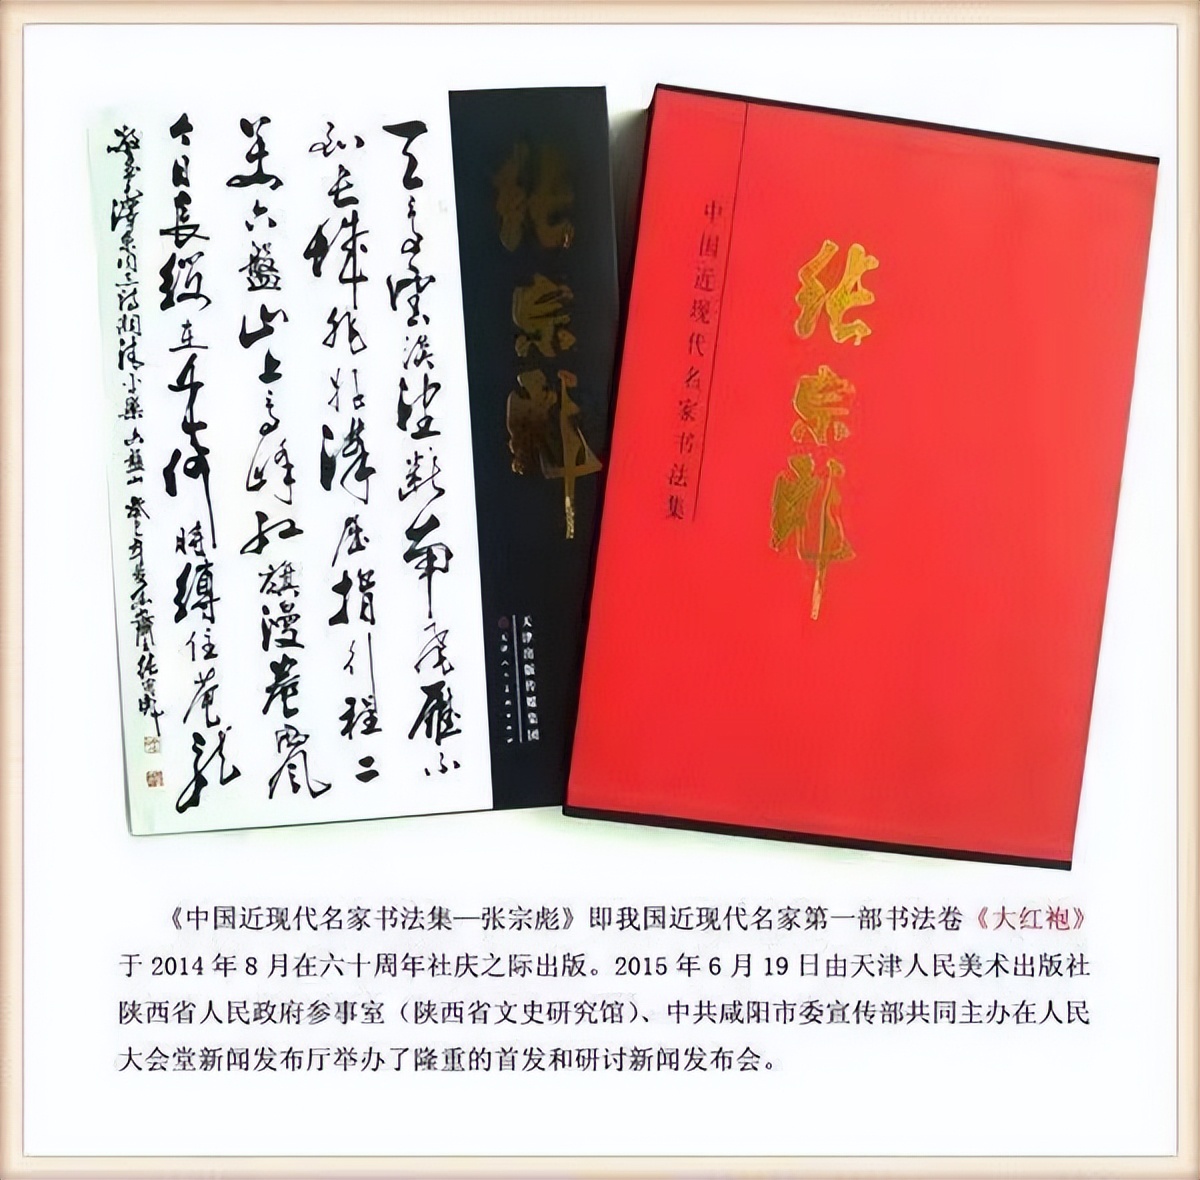 天高雲淡望断南飛雁不
到长城非好漢屈指行程二
萬六盤山上高峰红旗漫卷西風
今日長缨在手何時縛住蒼龍
敬書毛澤東同志詩詞清平樂六盤山
张宗彪
天津出版传媒集团
中国近现代名家书法集
张宗彪
《中国近现代名家书法集—张宗彪》即我国近现代名家第一部书法卷《大红袍》
于2014年8月在六十周年社庆之际出版。2015年6月19日由天津人民美术出版社
陕西省人民政府参事室（陕西省文史研究馆）、中共咸阳市委宣传部共同主办在人民
大会堂新闻发布厅举办了隆重的首发和研讨新闻发布会。